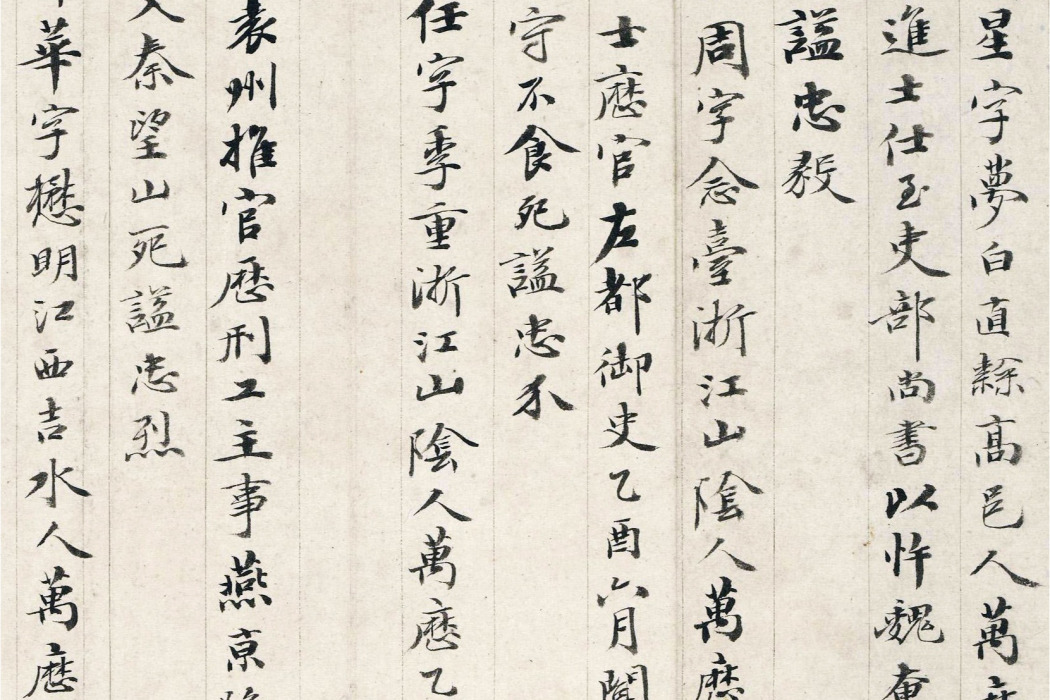 星字夢白直隸高邑人萬
進士仕至吏部尚書以忤魏奄
謚忠毅
周字念臺浙江山陰人萬歷
士歷官左都御史乙酉六月聞
守不食死謚忠介
任字季重浙江山陰人萬歷乙
袁州推官歷刑工主事燕京
秦望山死謚忠烈
華字懋明江西吉水人萬歷